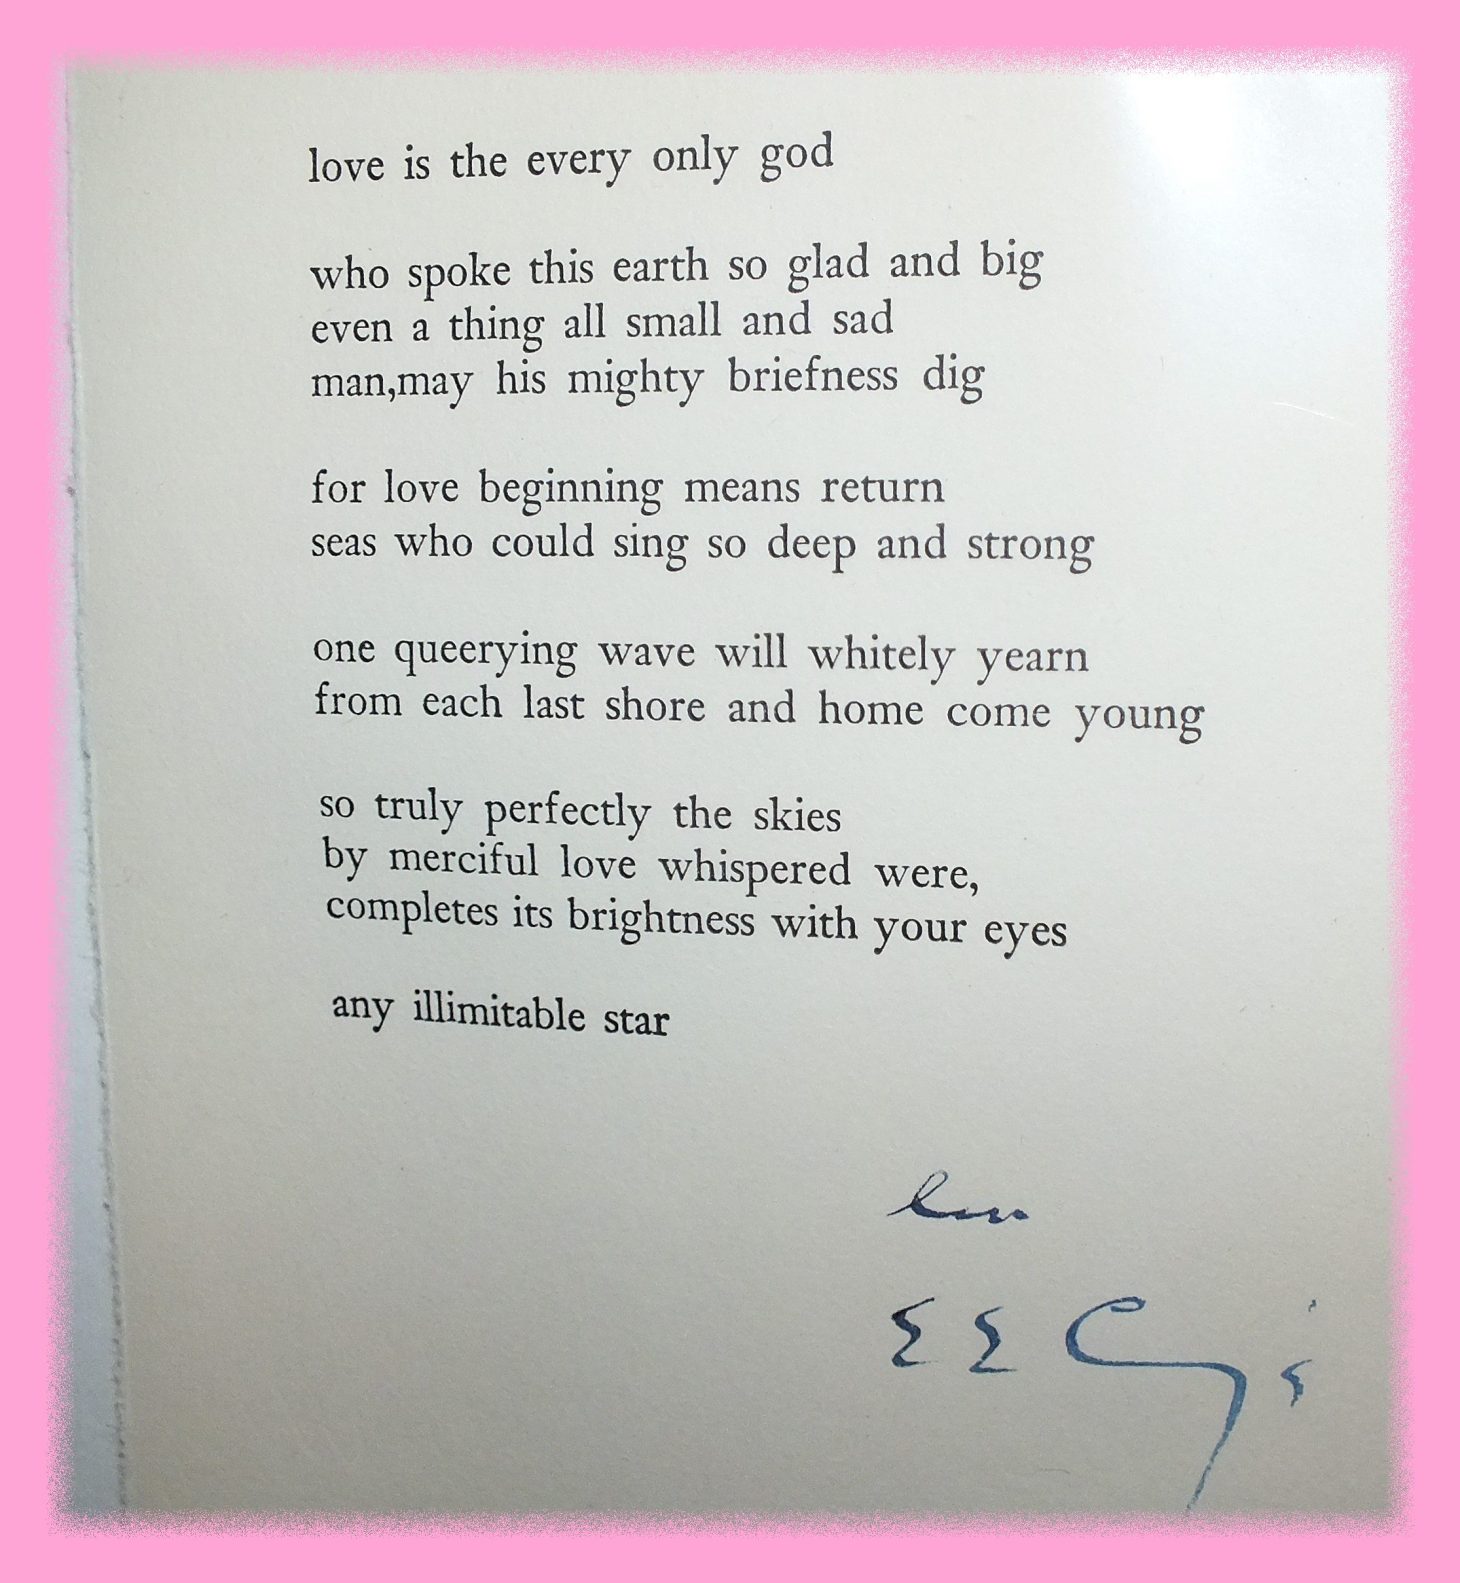 love is the every only god
who spoke this earth so glad and big
even a thing all small and sad
man,may his mighty briefness dig
for love beginning means return
seas who could sing so deep and strong
one queerying wave will whitely yearn
from each last shore and home come young
so truly perfectly the skies
by merciful love whispered were,
completes its brightness with your eyes
any illimitable star
E E